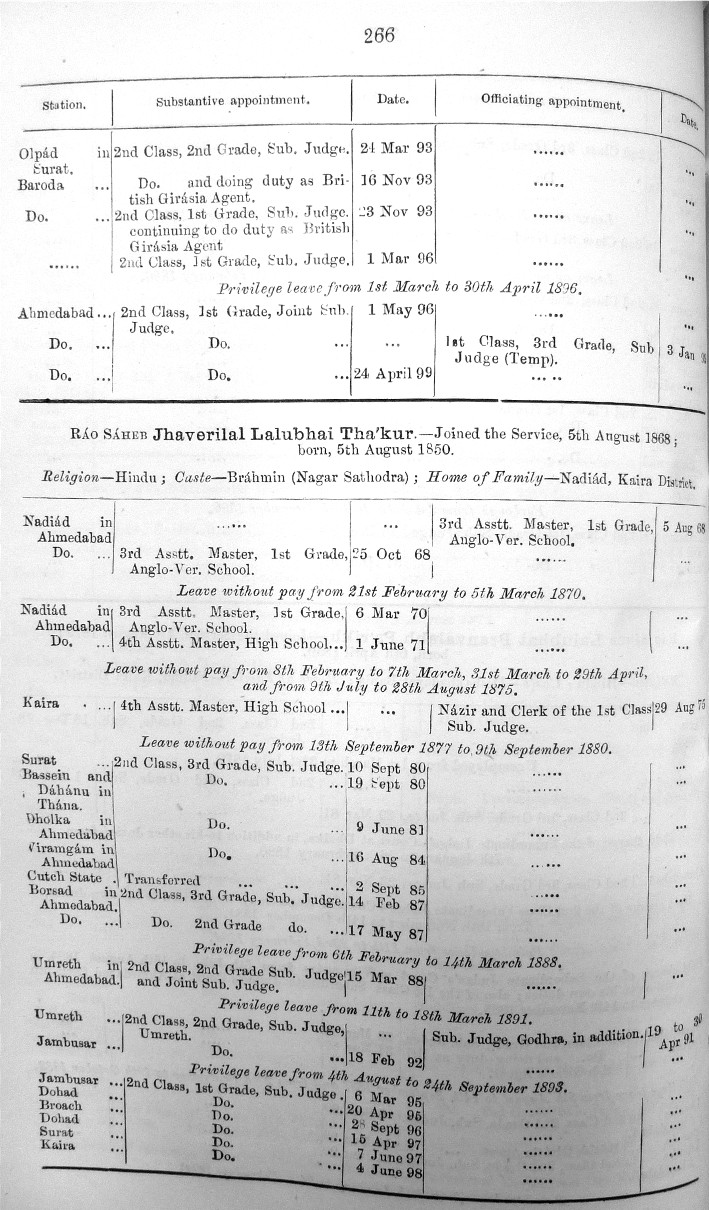 266
Station. Substantive appointment. Date. Officiating appointment. Date.
Olpád in 2nd Class, 2nd Grade, Sub. Judge. 24 Mar 93 ...... ...
Surat.
Baroda ... Do. and doing duty as Bri- 16 Nov 93 ...... ...
tish Girásia Agent.
Do. ... 2nd Class, 1st Grade, Sub. Judge. 23 Nov 93 ...... ...
continuing to do duty as British
Girásia Agent
...... 2nd Class, 1st Grade, Sub. Judge. 1 Mar 96 ...... ...
Privilege leave from 1st March to 30th April 1896.
Ahmedabad... 2nd Class, 1st Grade, Joint Sub. 1 May 96 ...... ...
Judge.
Do. ... Do. ... ... 1st Class, 3rd Grade, Sub 3 Jan
Judge (Temp).
Do. ... Do. ... 24 April 99 ... .. ...
RÁO SÁHEB Jhaverilal Lalubhai Tha'kur.—Joined the Service, 5th August 1868;
born, 5th August 1850.
Religion—Hindu; Caste—Bráhmin (Nagar Sathodra); Home of Family—Nadiád, Kaira District.
Nadiád in ...... ... 3rd Asstt. Master, 1st Grade, 5 Aug 68
Ahmedabad Anglo-Ver. School.
Do. ... 3rd Asstt. Master, 1st Grade, 25 Oct 68 ...... ...
Anglo-Ver. School.
Leave without pay from 21st February to 5th March 1870.
Nadiád in 3rd Asstt. Master, 1st Grade, 6 Mar 70 ...... ...
Ahmedabad Anglo-Ver. School.
Do. ... 4th Asstt. Master, High School... 1 June 71 ...... ...
Leave without pay from 8th February to 7th March, 31st March to 29th April,
and from 9th July to 28th August 1875.
Kaira ... 4th Asstt. Master, High School ... ... Názir and Clerk of the 1st Class 29 Aug 75
Sub. Judge.
Leave without pay from 13th September 1877 to 9th September 1880.
Surat ... 2nd Class, 3rd Grade, Sub. Judge. 10 Sept 80 ...... ...
Bassein and Do. ... 19 Sept 80 ...... ...
Dáhánu in
Thána.
Dholka in Do. ... 9 June 81 ...... ...
Ahmedabad
Viramgám in Do. ... 16 Aug 84 ...... ...
Ahmedabad
Cutch State . Transferred ... ... ... 2 Sept 85 ...... ...
Borsad in 2nd Class, 3rd Grade, Sub. Judge. 14 Feb 87 ...... ...
Ahmedabad.
Do. ... Do. 2nd Grade do. ... 17 May 87 ...... ...
Privilege leave from 6th February to 14th March 1888.
Umreth in 2nd Class, 2nd Grade Sub. Judge 15 Mar 88 ...... ...
Ahmedabad. and Joint Sub. Judge.
Privilege leave from 11th to 18th March 1891.
Umreth ... 2nd Class, 2nd Grade, Sub. Judge, ... Sub. Judge, Godhra, in addition. 19 to 30
Umreth. Apr 91
Jambusar ... Do. ... 18 Feb 92 ...... ...
Privilege leave from 4th August to 24th September 1893.
Jambusar ... 2nd Class, 1st Grade, Sub. Judge . 6 Mar 95 ...... ...
Dohad ... Do. ... 20 Apr 95 ...... ...
Broach ... Do. ... 28 Sept 96 ...... ...
Dohad ... Do. ... 15 Apr 97 ...... ...
Surat ... Do. ... 7 June 97 ...... ...
Kaira ... Do. ... 4 June 98 ...... ...